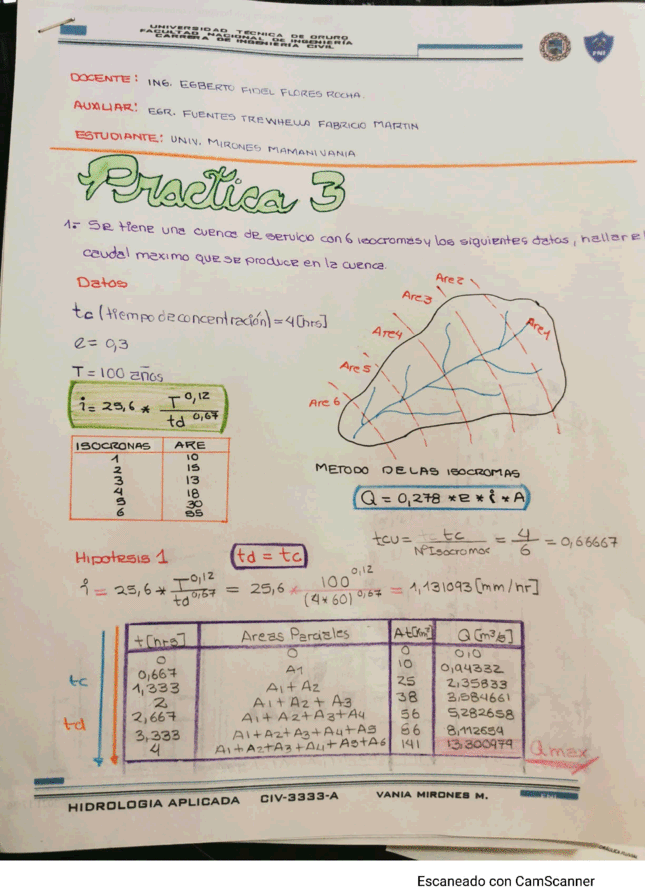 UNIVERSIDAD TÉCNICA DE ORURO
FACULTAD NACIONAL DE INGENIERÍA
CARRERA DE INGENIERÍA CIVIL
FNI
DOCENTE: ING. EGBERTO FIDEL FLORES ROCHA.
AUXILIAR: EGR. FUENTES TREWHELLA FABRICIO MARTIN
ESTUDIANTE: UNIV. MIRONES MAMANI VANIA
Practica 3
1.- Se tiene una cuenca de servicio con 6 isocromas y los siguientes datos, hallar el
caudal maximo que se produce en la cuenca.
Datos
tc (tiempo de concentración) = 4 [hrs]
e = 0,3
T = 100 años
i = 25,6 * T^0,12 / td^0,67
Are 2
Are 3
Are 1
Are 4
Are 5
Are 6
ISOCRONAS ARE
1 10
2 15
3 13
4 18
5 30
6 55
METODO DE LAS ISOCROMAS
Q = 0,278 * e * i * A
tcu = tc / N° Isocromas = 4 / 6 = 0,66667
Hipotesis 1 td = tc
i = 25,6 * T^0,12 / td^0,67 = 25,6 * 100^0,12 / (4*60)^0,67 = 1,131093 [mm/hr]
t [hrs] Areas Parciales At [Km²] Q [m³/s]
0 0 0 0,0
0,667 A1 10 0,94332
1,333 A1 + A2 25 2,35833
2 A1 + A2 + A3 38 3,584661
2,667 A1 + A2 + A3 + A4 56 5,282658
3,333 A1 + A2 + A3 + A4 + A5 86 8,112654
4 A1 + A2 + A3 + A4 + A5 + A6 141 13,300979 Qmax
tc
td
HIDROLOGIA APLICADA CIV-3333-A VANIA MIRONES M.
Escaneado con CamScanner